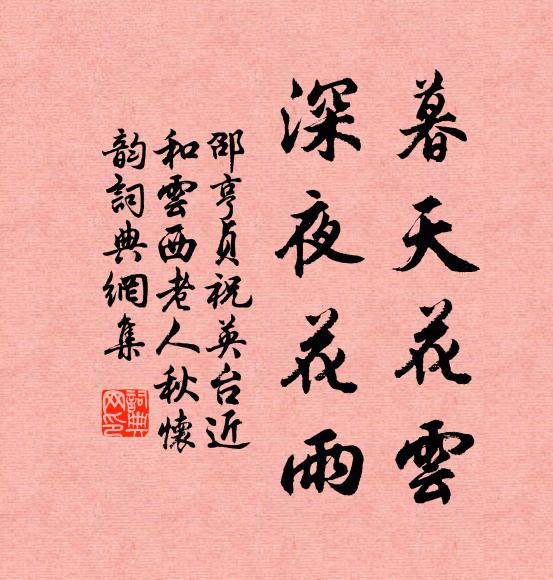 暮天花雲
深夜花雨
邵亨貞祝英台近
和雲西老人秋懷
韵詞典網集
詞典网印